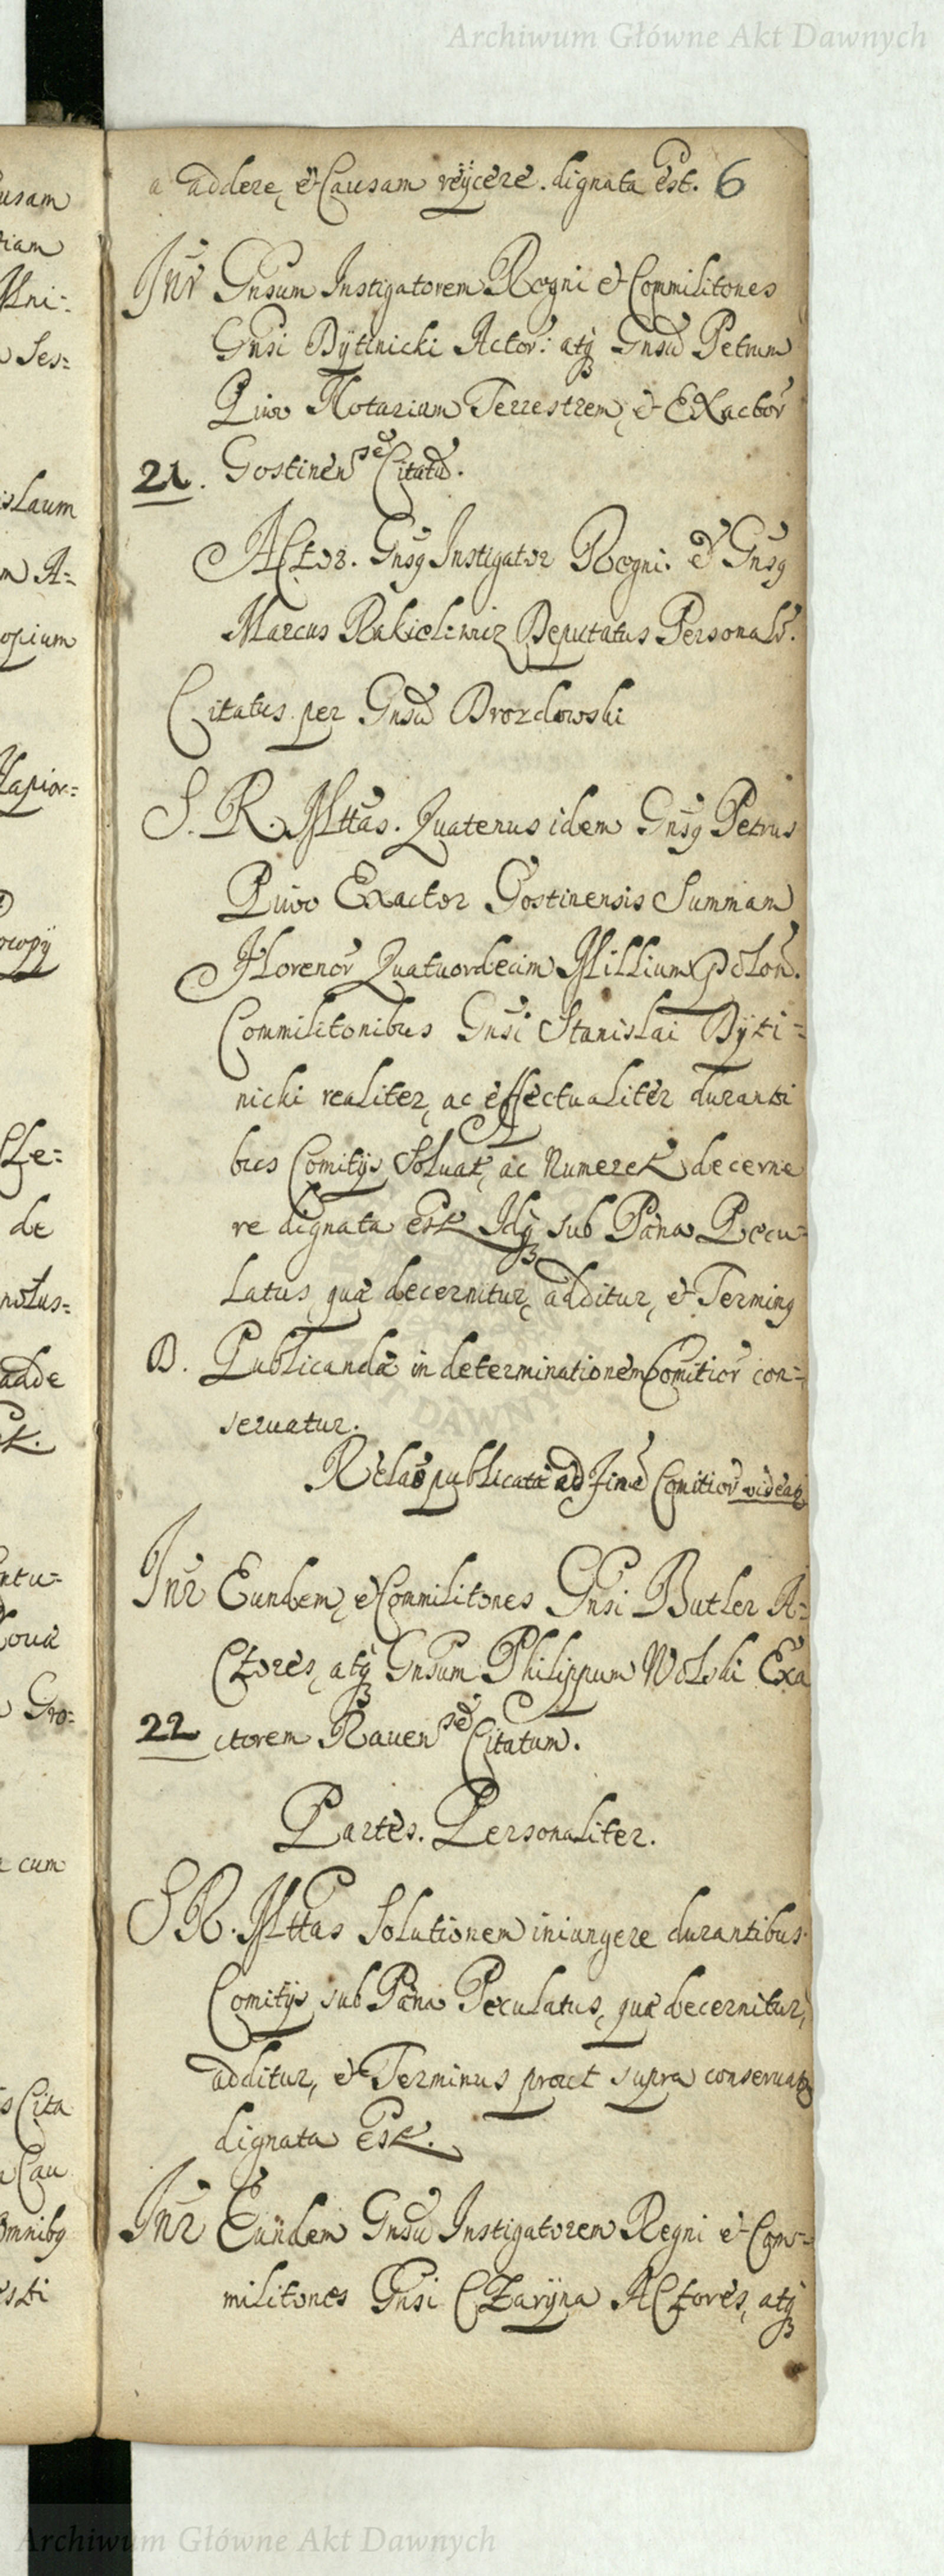 Archiwum Główne Akt Dawnych
a addere, et Causam reÿcere dignata Est. 6
Inr Gnsum Instigatorem Regni et Commilitones
Gnsi Bÿtinicki Actor: atq Gnsũ Petrum
Piwo Notarium Terrestrem, et Exactor
Gostinensẽ Citatũ.
21.
Actor. Gnsg Instigator Regni. et Gnsg
Marcus Rakielewicz Deputatus Personalr.
Citatus per Gnsũ Brozdowski
S. R. Mttas. Quatenus idem Gnsg Petrus
Piwo Exactor Gostinensis Summam
Florenor Quatuordecim Millium Polon.
Commilitonibus Gnsi Stanislai Bÿti-
nicki realiter, ac effectualiter duranti
bus Comitÿs Soluat, ac Numeret decerne
re dignata est Idq sub Pæna Pecu-
latus quæ decernitur, additur, et Terming
D. Publicandæ in determinationem Comitior con-
seruatur.
Relao publicata ad finẽ Comitior videat
Inr Eundem, et Commilitones Gnsi Butler A-
ctores, atq Gnsum Philippum Wolski Exa
22 ctorem Rauensẽ Citatum.
Partes. Personaliter.
S R. Mttas Solutionem iniungere durantibus
Comitÿs sub Pæna Peculatus, quæ decernitur,
additur, et Terminus prout supra conseruat
dignata Est.
Inr Eundem Gnsũ Instigatorem Regni et Com-
militones Gnsi Czarÿna Actores, atq
Archiwum Główne Akt Dawnych